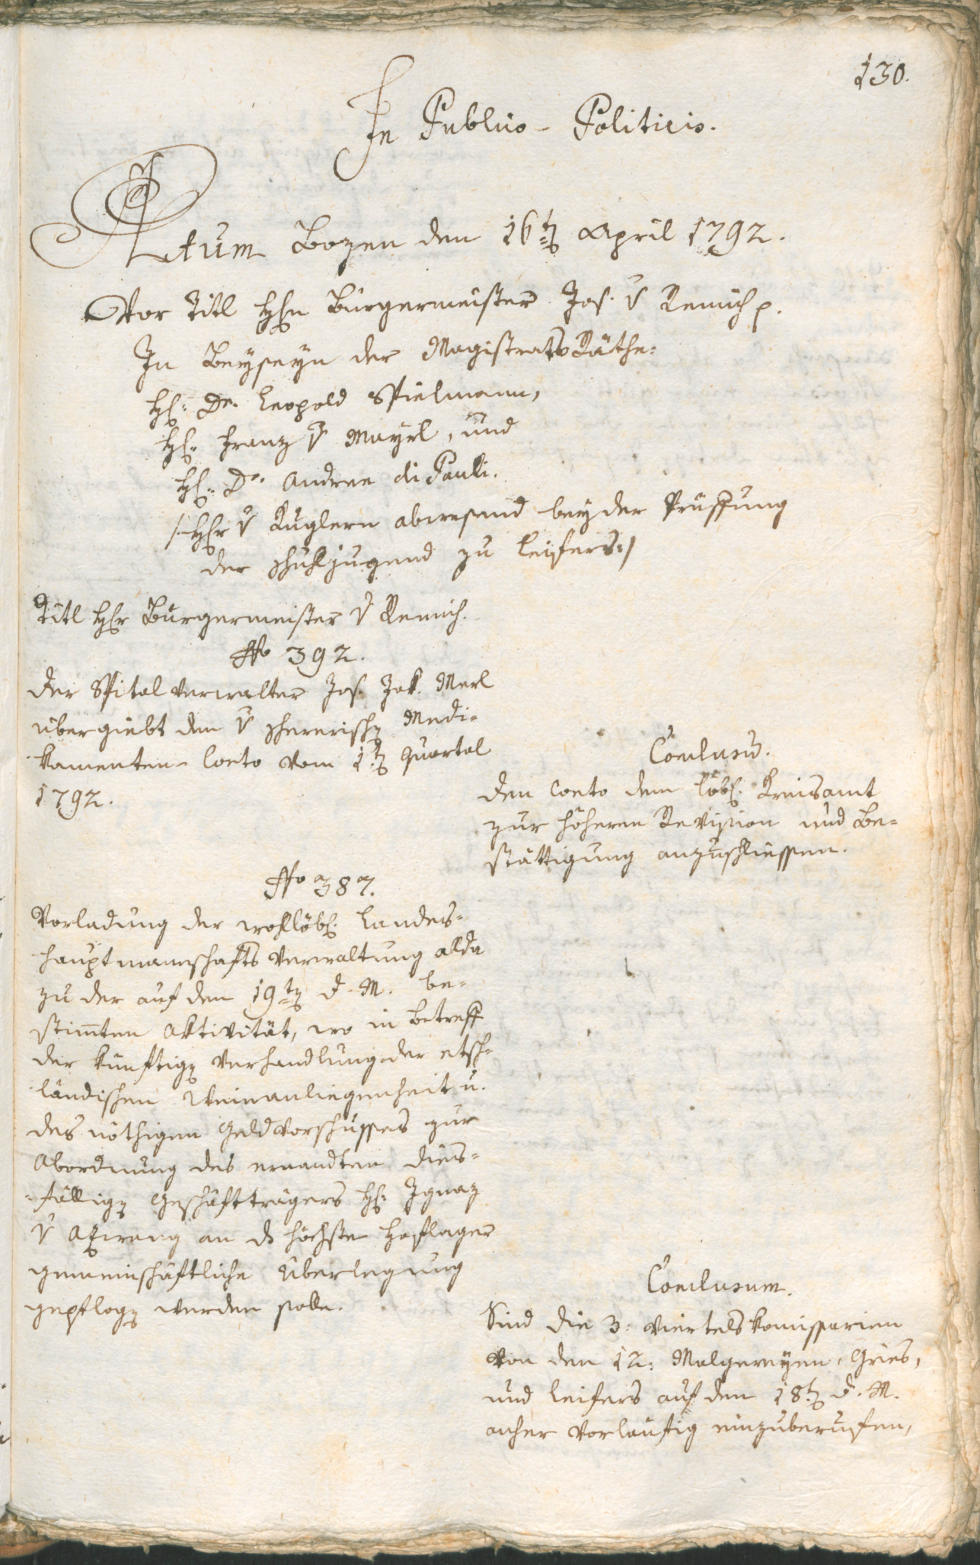 130.
In Publico-Politicis.
Actum Bozen den 16ten April 1792.
Vor Titl Hhn Bürgermeister Jos. v Remich p.
In Beyseyn der Magistrats Räthe:
H: Dr. Leopold Spielmann,
H: Franz v Mayrl, und
H: Dr. Andree di Pauli.
/: Hr v Kuglern abwesend bey der Prüffung
der Schuhljugend zu Leifers :/
Titl Hr Bürgermeister v Remich.
No 392.
Der Spitalverwalter Jos. Jak. Merl
übergiebt den v Schererischen Medi-
kamenten-Conto vom 1ten Quartal
1792.
Conclusum.
Den Conto dem löbl: Kreisamt
zur höheren Revision und Be-
stättigung anzuschliessen.
No 387.
Vorladung der wohllöbl: Landes-
hauptmannschafts Verwaltung alda
zu der auf den 19ten d. M. be-
stimten Aktivität, wo in Betreff
der künftigen Verhandlung der etsch-
ländischen Weinanliegenheit u.
des nöthigen Geldvorschusses zur
Abordnung des ernandten dies-
fälligen Geschäftträgers H: Ignaz
v Atzwang an d höchste Hoflager
gemeinschäftliche Überlegung
gepflogen werden solle.
Conclusum.
Sind die 3: Viertelskomissarien
von den 12: Malgereyen, Gries,
und Leifers auf den 18ten d. M.
anher vorläufig einzuberufen,